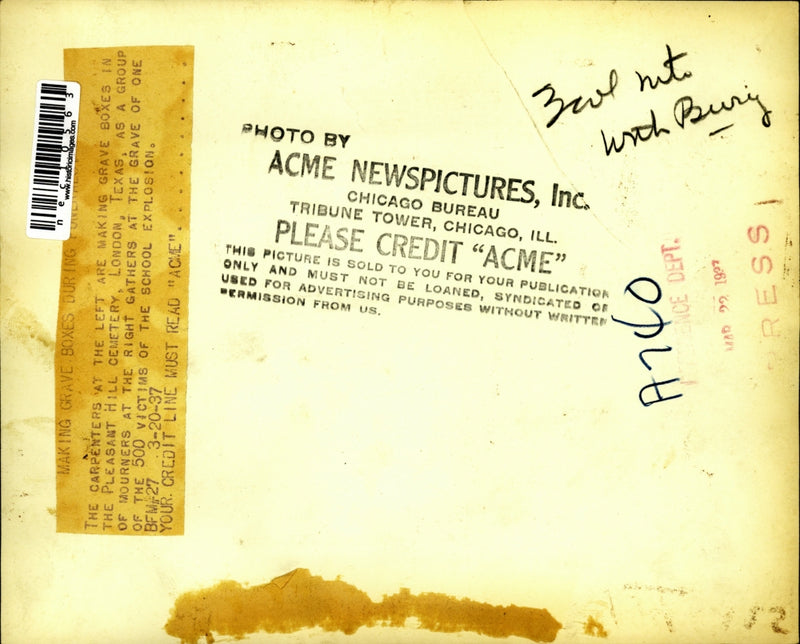 MAKING GRAVE BOXES DURING
THE CARPENTERS AT THE LEFT ARE MAKING GRAVE BOXES IN
THE PLEASANT HILL CEMETERY, LONDON, TEXAS, AS A GROUP
OF MOURNERS AT THE RIGHT GATHERS AT THE GRAVE OF ONE
OF THE 500 VICTIMS OF THE SCHOOL EXPLOSION.
BFM#27 3-20-37
YOUR CREDIT LINE MUST READ "ACME"
www.historicimages.com
PHOTO BY
ACME NEWSPICTURES, Inc.
CHICAGO BUREAU
TRIBUNE TOWER, CHICAGO, ILL.
PLEASE CREDIT "ACME"
THIS PICTURE IS SOLD TO YOU FOR YOUR PUBLICATION
ONLY AND MUST NOT BE LOANED, SYNDICATED OR
USED FOR ADVERTISING PURPOSES WITHOUT WRITTEN
PERMISSION FROM US.
with
A740
DEPT.
MAR 22 1937
PRESS